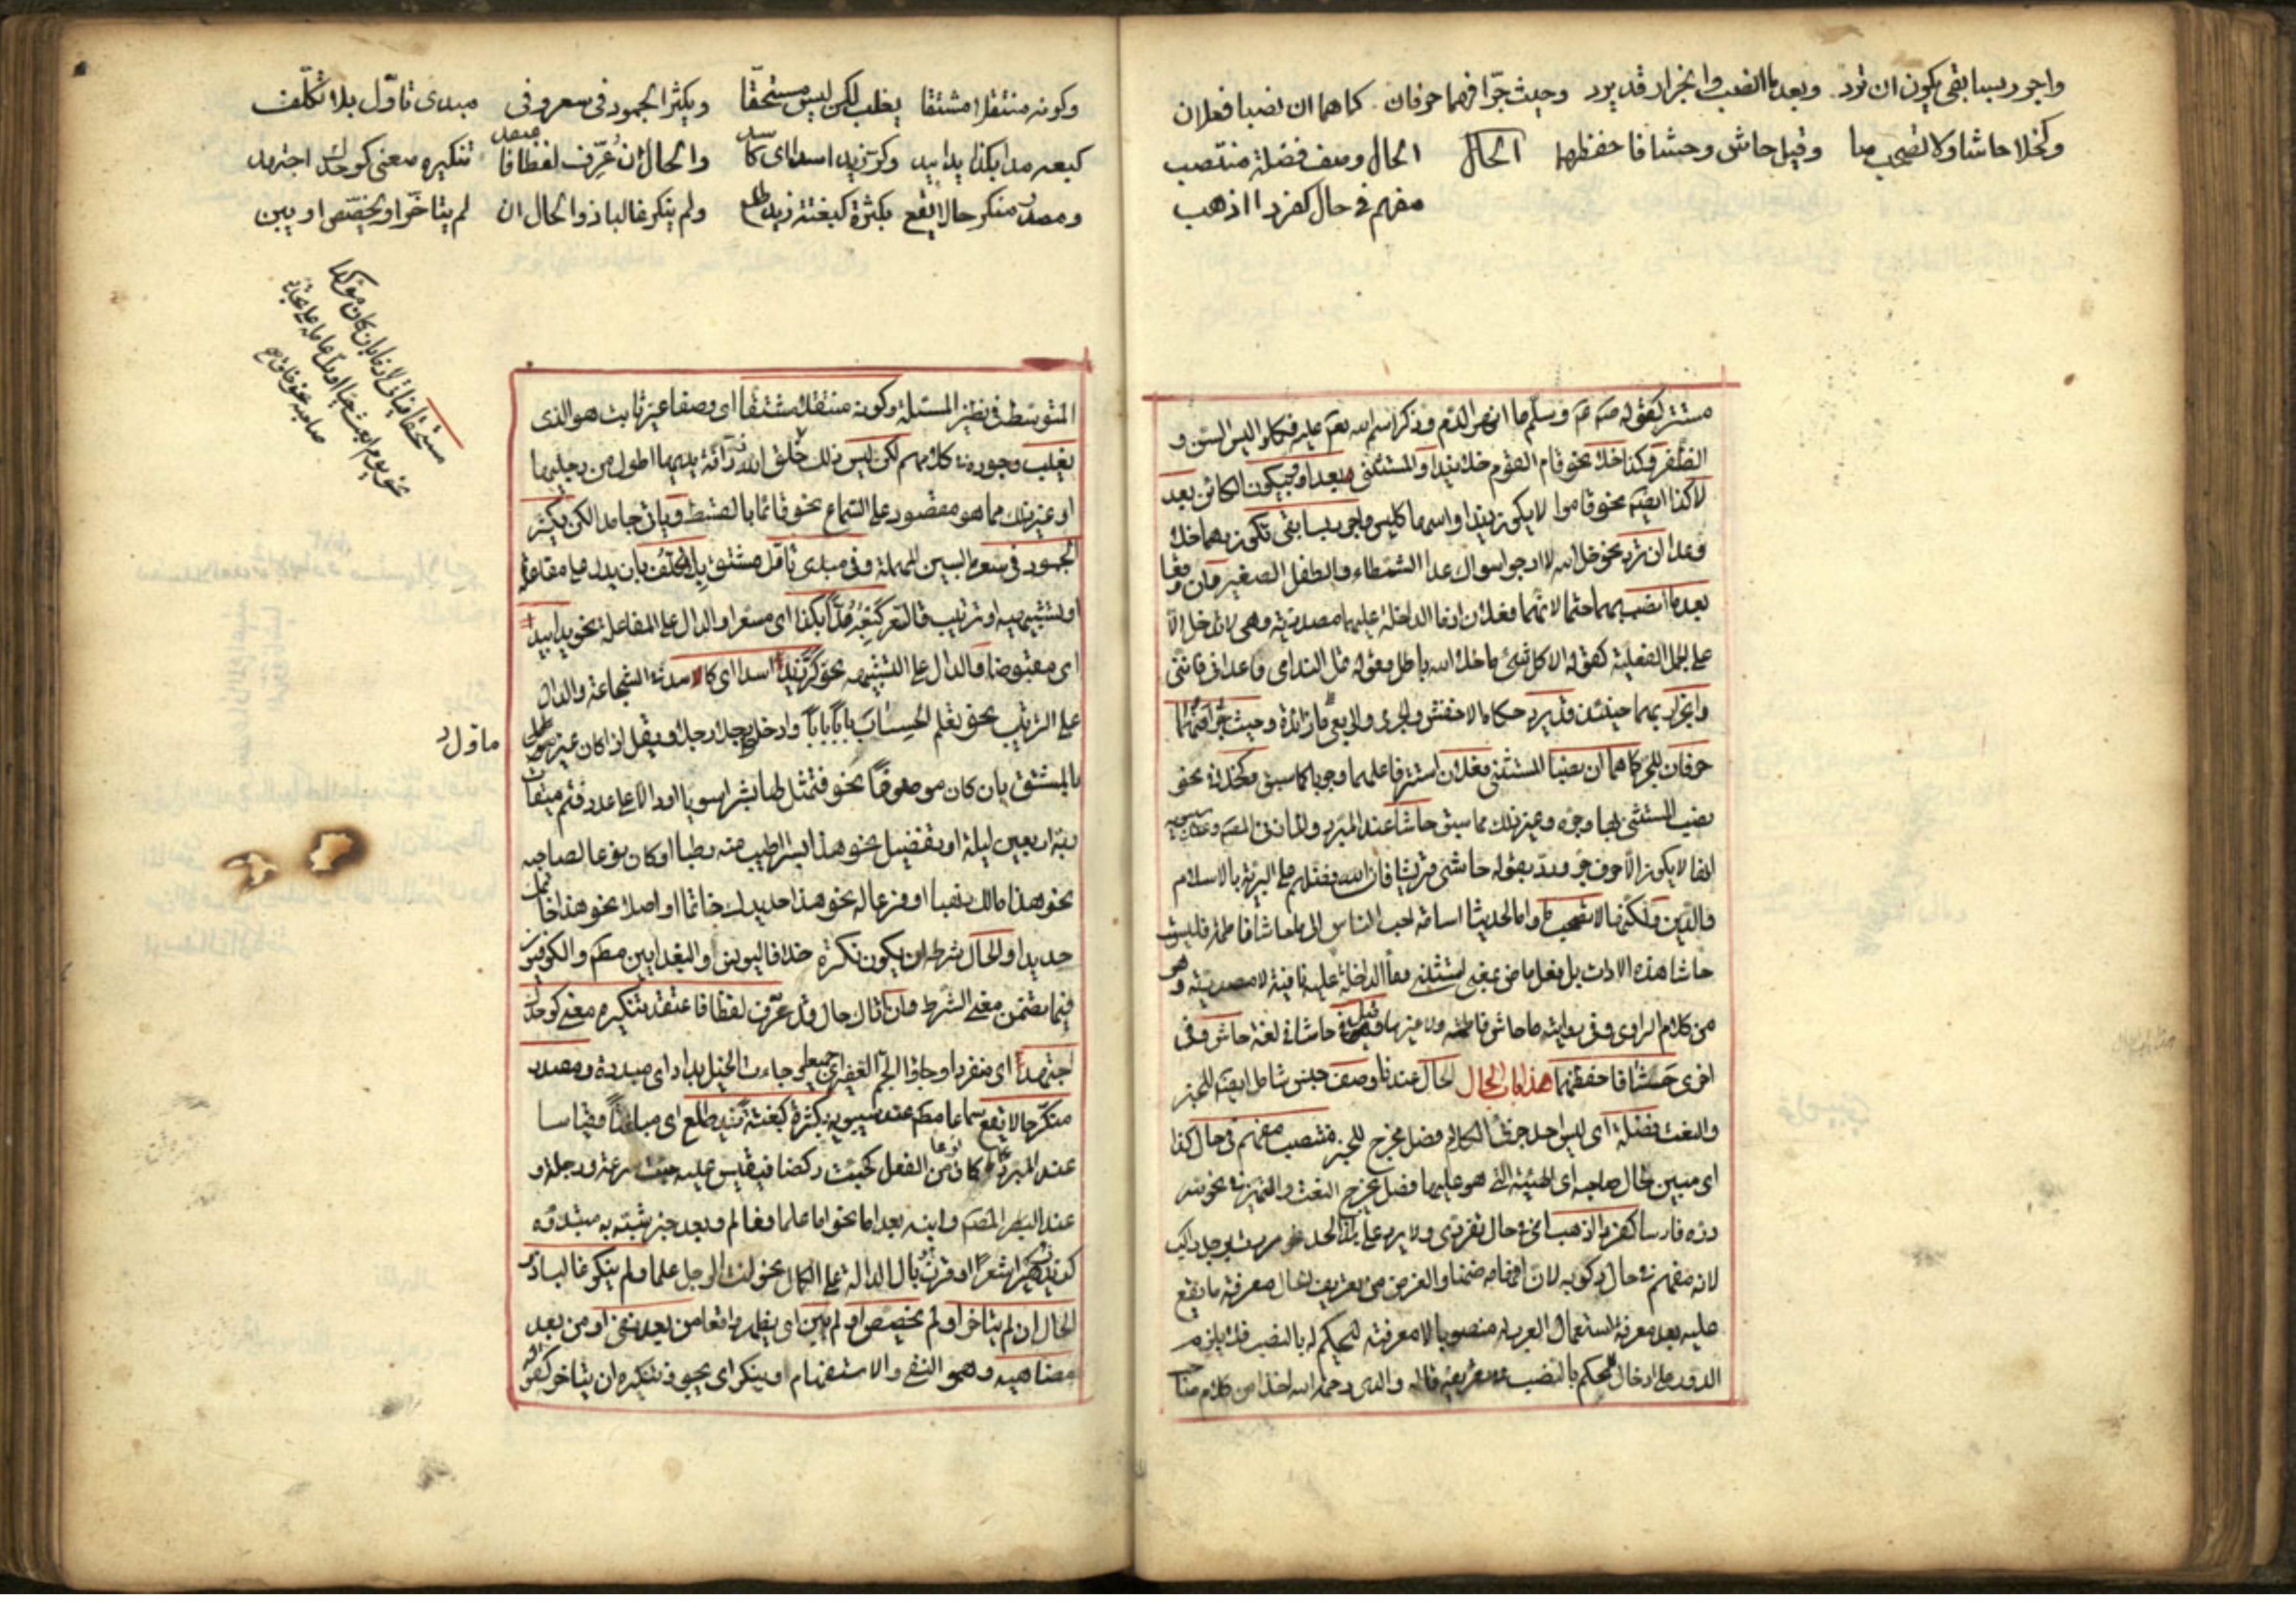 واجرر بسابقي يكون ان ترد وبعد ما انصب وانجرار قد يرد وحيث جرا فهما حرفان كما هما ان نصبا فعلان
وكخلا حاشا ولا تصحب ما وقيل حاش وحشا فاحفظهما الحال الحال وصف فضلة منتصب
مفهم في حال كفردا اذهب
مستتر كقوله وسلم ما انهر الدم وذكر اسم الله عليه فكلوا ليس السن و
الظفر وكذا خلا نحو قام القوم خلا زيدا والمستثنى بعدا وبيكون الكائن بعد
لا كذا ايضا نحو قاموا لا يكون زيدا واسمها كليس واجرر بسابقي تكون وهما خلا
وعدا ان ترد نحو خلا الله لا ارجو سواك عدا الشمطاء والطفل الصغير وان وقعا
بعد ما انصب بهما حتما لانهما فعلان اذ ما الداخلة عليهما مصدرية وهي لا تدخل الا
على الجمل الفعلية كقوله الا كل شئ ما خلا الله باطل وقوله تمل الندامى ما عداني فانني
وانجرار بهما حينئذ قد يرد حكاه الاخفش والجرمي والربعي فما زائدة وحيث جرا فهما
حرفان للجر كما هما ان نصبا المستثنى فعلان استتر فاعلهما وجوبا كما سبق وكخلا في نحو
نصب المستثنى بها وجره وغير ذلك مما سبق حاشا عند المبرد والمازني والمص وعند سيبويه
انها لا يكون الا حرف جر ورد بقوله حاشى قريشا فان الله فضلهم على البرية بالاسلام
والدين ولكنها لا تصحب ما واما الحديث اسامة احب الناس الي ما حاشا فاطمة فليست
حاشا هذه الادات بل فعل ماض بمعنى استثنى وما الداخلة عليه نافية لا مصدرية وهو
من كلام الراوي وفي رواية ما حاش فاطمة ولا غيرها وقيل في حاشا في لغة حاش وفي
اخرى حشا فاحفظهما هذا باب الحال الحال عندنا وصف جنس شامل ايضا للخبر
والنعت فضلة اي ليس احد جزئي الكلام فصل مخرج للخبر منتصب مفهم في حال كذا
اي مبين لحال صاحبه اي الهيئة التي هو عليها فصل مخرج النعت والتمييز في نحو لله
دره فارسا كفردا اذهب اي في حال تفردي ولا يرد على هذا الحد مررت برجل راكب
لانه مفهم في حال ركوبه لان افهامه ضمنا والغرض من تعريف الحال معرفة ما يقع
عليه بعد معرفة استعمال العرب له منصوبا لا معرفته ليحكم له بالنصب فلا يلزم
الدور على ادخال الحكم بالنصب في تعريفه قاله والدي رحمه الله اخذا من كلام صاحب
وكونه منتقلا مشتقا يغلب لكن ليس مستحقا ويكثر الجمود في سعر وفي مبدي تاول بلا تكلف
كبعه مدا بكذا يدا بيد وكر زيد اسدا اي كاسد والحال ان عرف لفظا فاعتقد تنكيره معنى كوحدك اجتهد
ومصدر منكر حالا يقع بكثرة كبغتة زيد طلع ولم ينكر غالبا ذو الحال ان لم يتاخر او يخصص او يبن
مستحقا فياتي لازما بان كان مؤكدا
نحو يوم ابعث حيا او دل عامله على تجدد
صاحبه نحو خلق
المتوسط في نظير المسئلة وكونه منتقلا مشتقا اي وصفا غير ثابت هو الذي
يغلب وجوده في كلامهم لكن ليس ذلك خلق الله زرافة يديها اطول من رجليها
او غير ذلك مما هو مقصور على السماع نحو قائما بالقسط وياتي جامدا لكن يكثر
الجمود في سعر بالسين المهملة وفي مبدي تاول مشتق بلا تكلف بان يدل على مفاعلة
او تشبيه او ترتيب فالسعر كبعه مدا بكذا اي مسعرا والدال على المفاعلة نحو يدا بيد
اي مقبوضا والدال على التشبيه نحو كر زيد اسدا اي كاسد في الشجاعة والدال
على الترتيب نحو تعلم الحساب بابا بابا وادخلوا رجلا رجلا ويقل اذا كان غير مؤول
ماول
بالمشتق بان كان موصوفا نحو فتمثل لها بشرا سويا او دالا على عدد فتم ميقات
ربه اربعين ليلة او تفضيل نحو هذا بسرا اطيب منه رطبا او كان نوعا لصاحبه
نحو هذا مالك ذهبا او فرعا له نحو هذا حديدك خاتما او اصلا نحو هذا خاتمك
حديدا والحال شرطه ان يكون نكرة خلافا ليونس والبغداديين مطم والكوفيين
فيما تضمن معنى الشرط وان اتاك حال قد عرف لفظا فاعتقد تنكيره معنى كوحدك
اجتهد اي منفردا وجاؤا الجم الغفير اي جميعا وجاءت الخيل بداد اي مبددة ومصدر
منكر حالا يقع سماعا مطم عند سيبويه بكثرة كبغتة زيد طلع اي مباغتا وقياسا
عند المبرد كان نوعا من الفعل كجئت ركضا فيقيس عليه جئت سرعة ورجلة و
عند المص وابنه بعد اما نحو اما علما فعالم وبعد خبر شبه به مبتدؤه
كزيد زهير شعرا او قرن بال الدالة على الكمال نحو انت الرجل علما ولم ينكر غالبا ذو
الحال ان لم يتاخر او لم يخصص او لم يبن اي يظهر واقعا من بعد نفي او من بعد
مضاهيه وهو النهي والاستفهام او ينكر اي يجوز تنكيره ان يتاخر كقوله